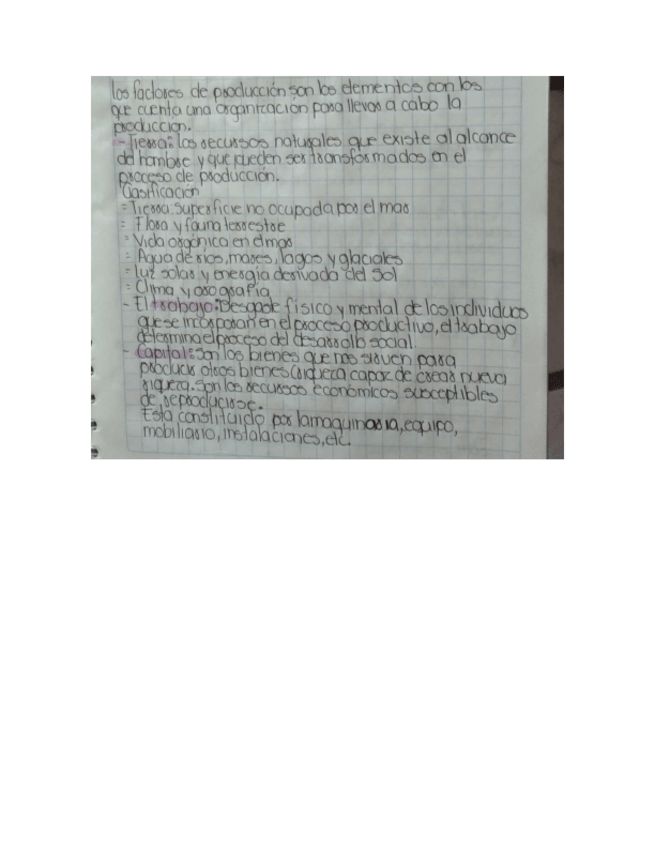 los factores de producción son los elementos con los
que cuenta una organización para llevar a cabo la
producción.
- Tierra: los recursos naturales que existe al alcance
de hombre y que pueden ser transformados en el
proceso de producción.
Clasificación
= Tierra: superficie no ocupada por el mar
= Flora y fauna terrestre
= Vida orgánica en el mar
= Agua de ríos, mares, lagos y glaciales
= Luz solar y energía derivada del sol
= Clima y orografia
- El trabajo: Desgaste físico y mental de los individuos
que se incorporan en el proceso productivo, el trabajo
determina el proceso del desarrollo social.
- Capital: Son los bienes que nos sirven para
producir otros bienes (riqueza capaz de crear nueva
riqueza. Son los recursos económicos susceptibles
de reproducirse.
Esta constituido por la maquinaria, equipo,
mobiliario, instalaciones, etc.